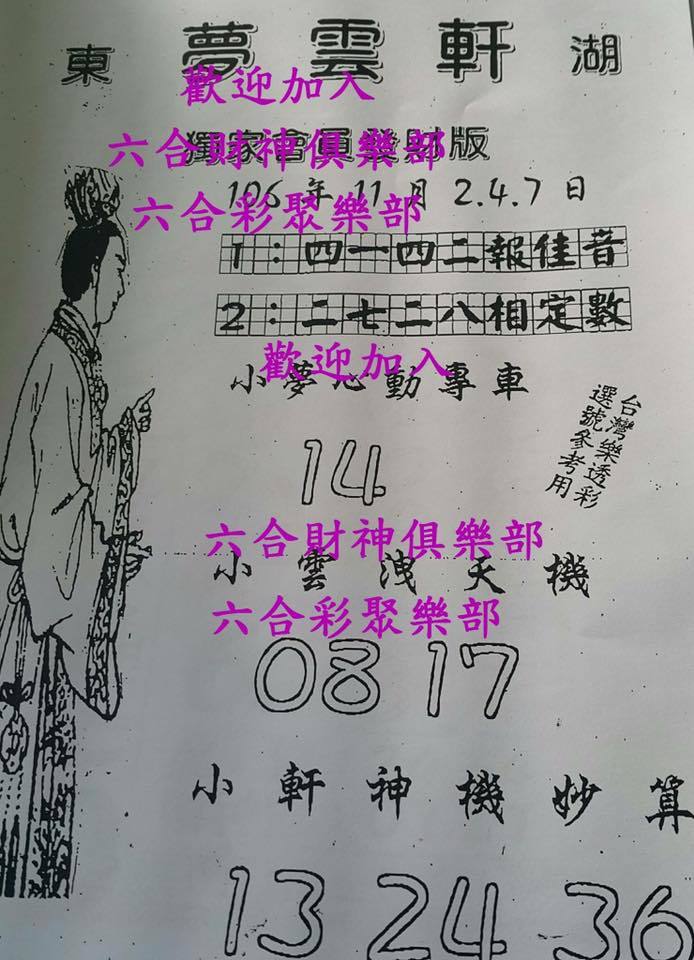 東 夢雲軒 湖
歡迎加入
六合財神俱樂部
獨家會員發財版
106年11月2.4.7日
六合彩聚樂部
1：四一四二報佳音
2：二七二八相定數
歡迎加入
小夢心動專車
台灣樂透彩
選號參考用
14
六合財神俱樂部
小雲洩天機
六合彩聚樂部
08 17
小軒神機妙算
13 24 36